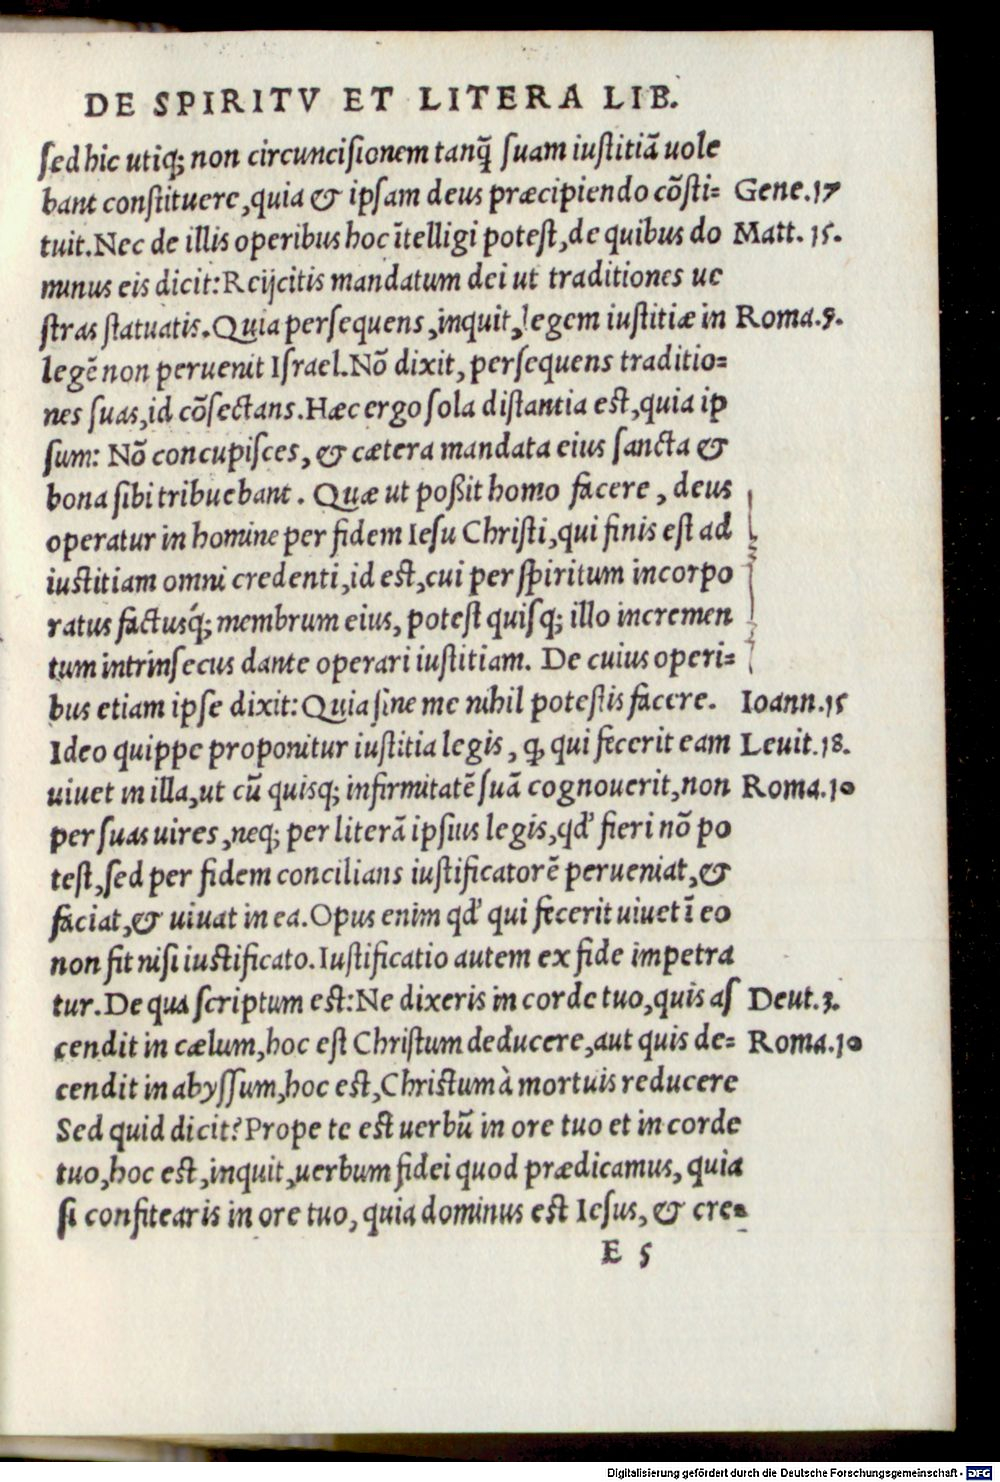 DE SPIRITV ET LITERA LIB.
sed hic utiq; non circuncisionem tanq̃ suam iustitiã uole
bant constituere, quia & ipsam deus præcipiendo cõsti= Gene.17
tuit. Nec de illis operibus hoc ĩtelligi potest, de quibus do Matt. 15.
minus eis dicit: Reijcitis mandatum dei ut traditiones ue
stras statuatis. Quia persequens, inquit, legem iustitiæ in Roma.9.
legẽ non peruenit Israel. Nõ dixit, persequens traditio=
nes suas, id cõsectans. Hæc ergo sola distantia est, quia ip
sum: Nõ concupisces, & cætera mandata eius sancta &
bona sibi tribuebant. Quæ ut poßit homo facere, deus
operatur in homine per fidem Iesu Christi, qui finis est ad
iustitiam omni credenti, id est, cui per spiritum incorpo
ratus factusq́; membrum eius, potest quisq; illo incremen
tum intrinsecus dante operari iustitiam. De cuius operi=
bus etiam ipse dixit: Quia sine me nihil potestis facere. Ioann.15
Ideo quippe proponitur iustitia legis, ꝙ qui fecerit eam Leuit.18.
uiuet in illa, ut cũ quisq; infirmitatẽ suã cognouerit, non Roma.10
per suas uires, neq; per literã ipsius legis, qd' fieri nõ po
test, sed per fidem concilians iustificatorẽ perueniat, &
faciat, & uiuat in ea. Opus enim qd' qui fecerit uiuet ĩ eo
non fit nisi iustificato. Iustificatio autem ex fide impetra
tur. De qua scriptum est: Ne dixeris in corde tuo, quis as Deut.3.
cendit in cælum, hoc est Christum deducere, aut quis de= Roma.10
cendit in abyssum, hoc est, Christum à mortuis reducere
Sed quid dicit? Prope te est uerbũ in ore tuo et in corde
tuo, hoc est, inquit, uerbum fidei quod prædicamus, quia
si confitearis in ore tuo, quia dominus est Iesus, & cre=
E 5
Digitalisierung gefördert durch die Deutsche Forschungsgemeinschaft - DFG